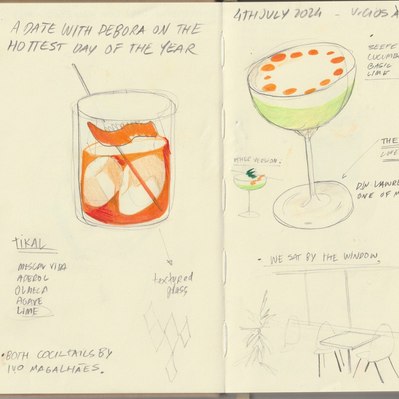 A DATE WITH DEBORA ON THE
HOTTEST DAY OF THE YEAR
TIKAL
MEZCAL VIDA
APEROL
OLMECA
AGAVE
LIME
textured
glass
• BOTH COCKTAILS BY
IVO MAGALHÃES.
4TH JULY 2024 -
BEEFE
CUCUMB
BASIL
LIME
OTHER VERSION:
THE
LIME
ONE OF M
• WE SAT BY THE WINDOW